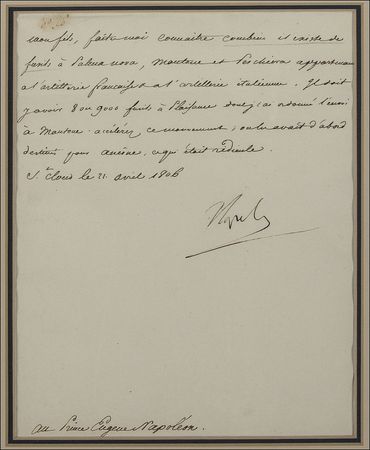 mon fils, faites moi connaitre combien il existe de
fusils à Palma nova, Mantoue et Peschiera appartenan
a l'artillerie française et a l'artillerie italienne. Il doit
y avoir 8 ou 9000 fusils à Plaisance dont j'ai ordonné l'envoi
à Mantoue : accélérez ce mouvement ; on les avait d'abord
destinés pour ancône, ce qui était ridicule.
St. Cloud le 21 avril 1806
Napole
au Prince Eugene Napoléon.